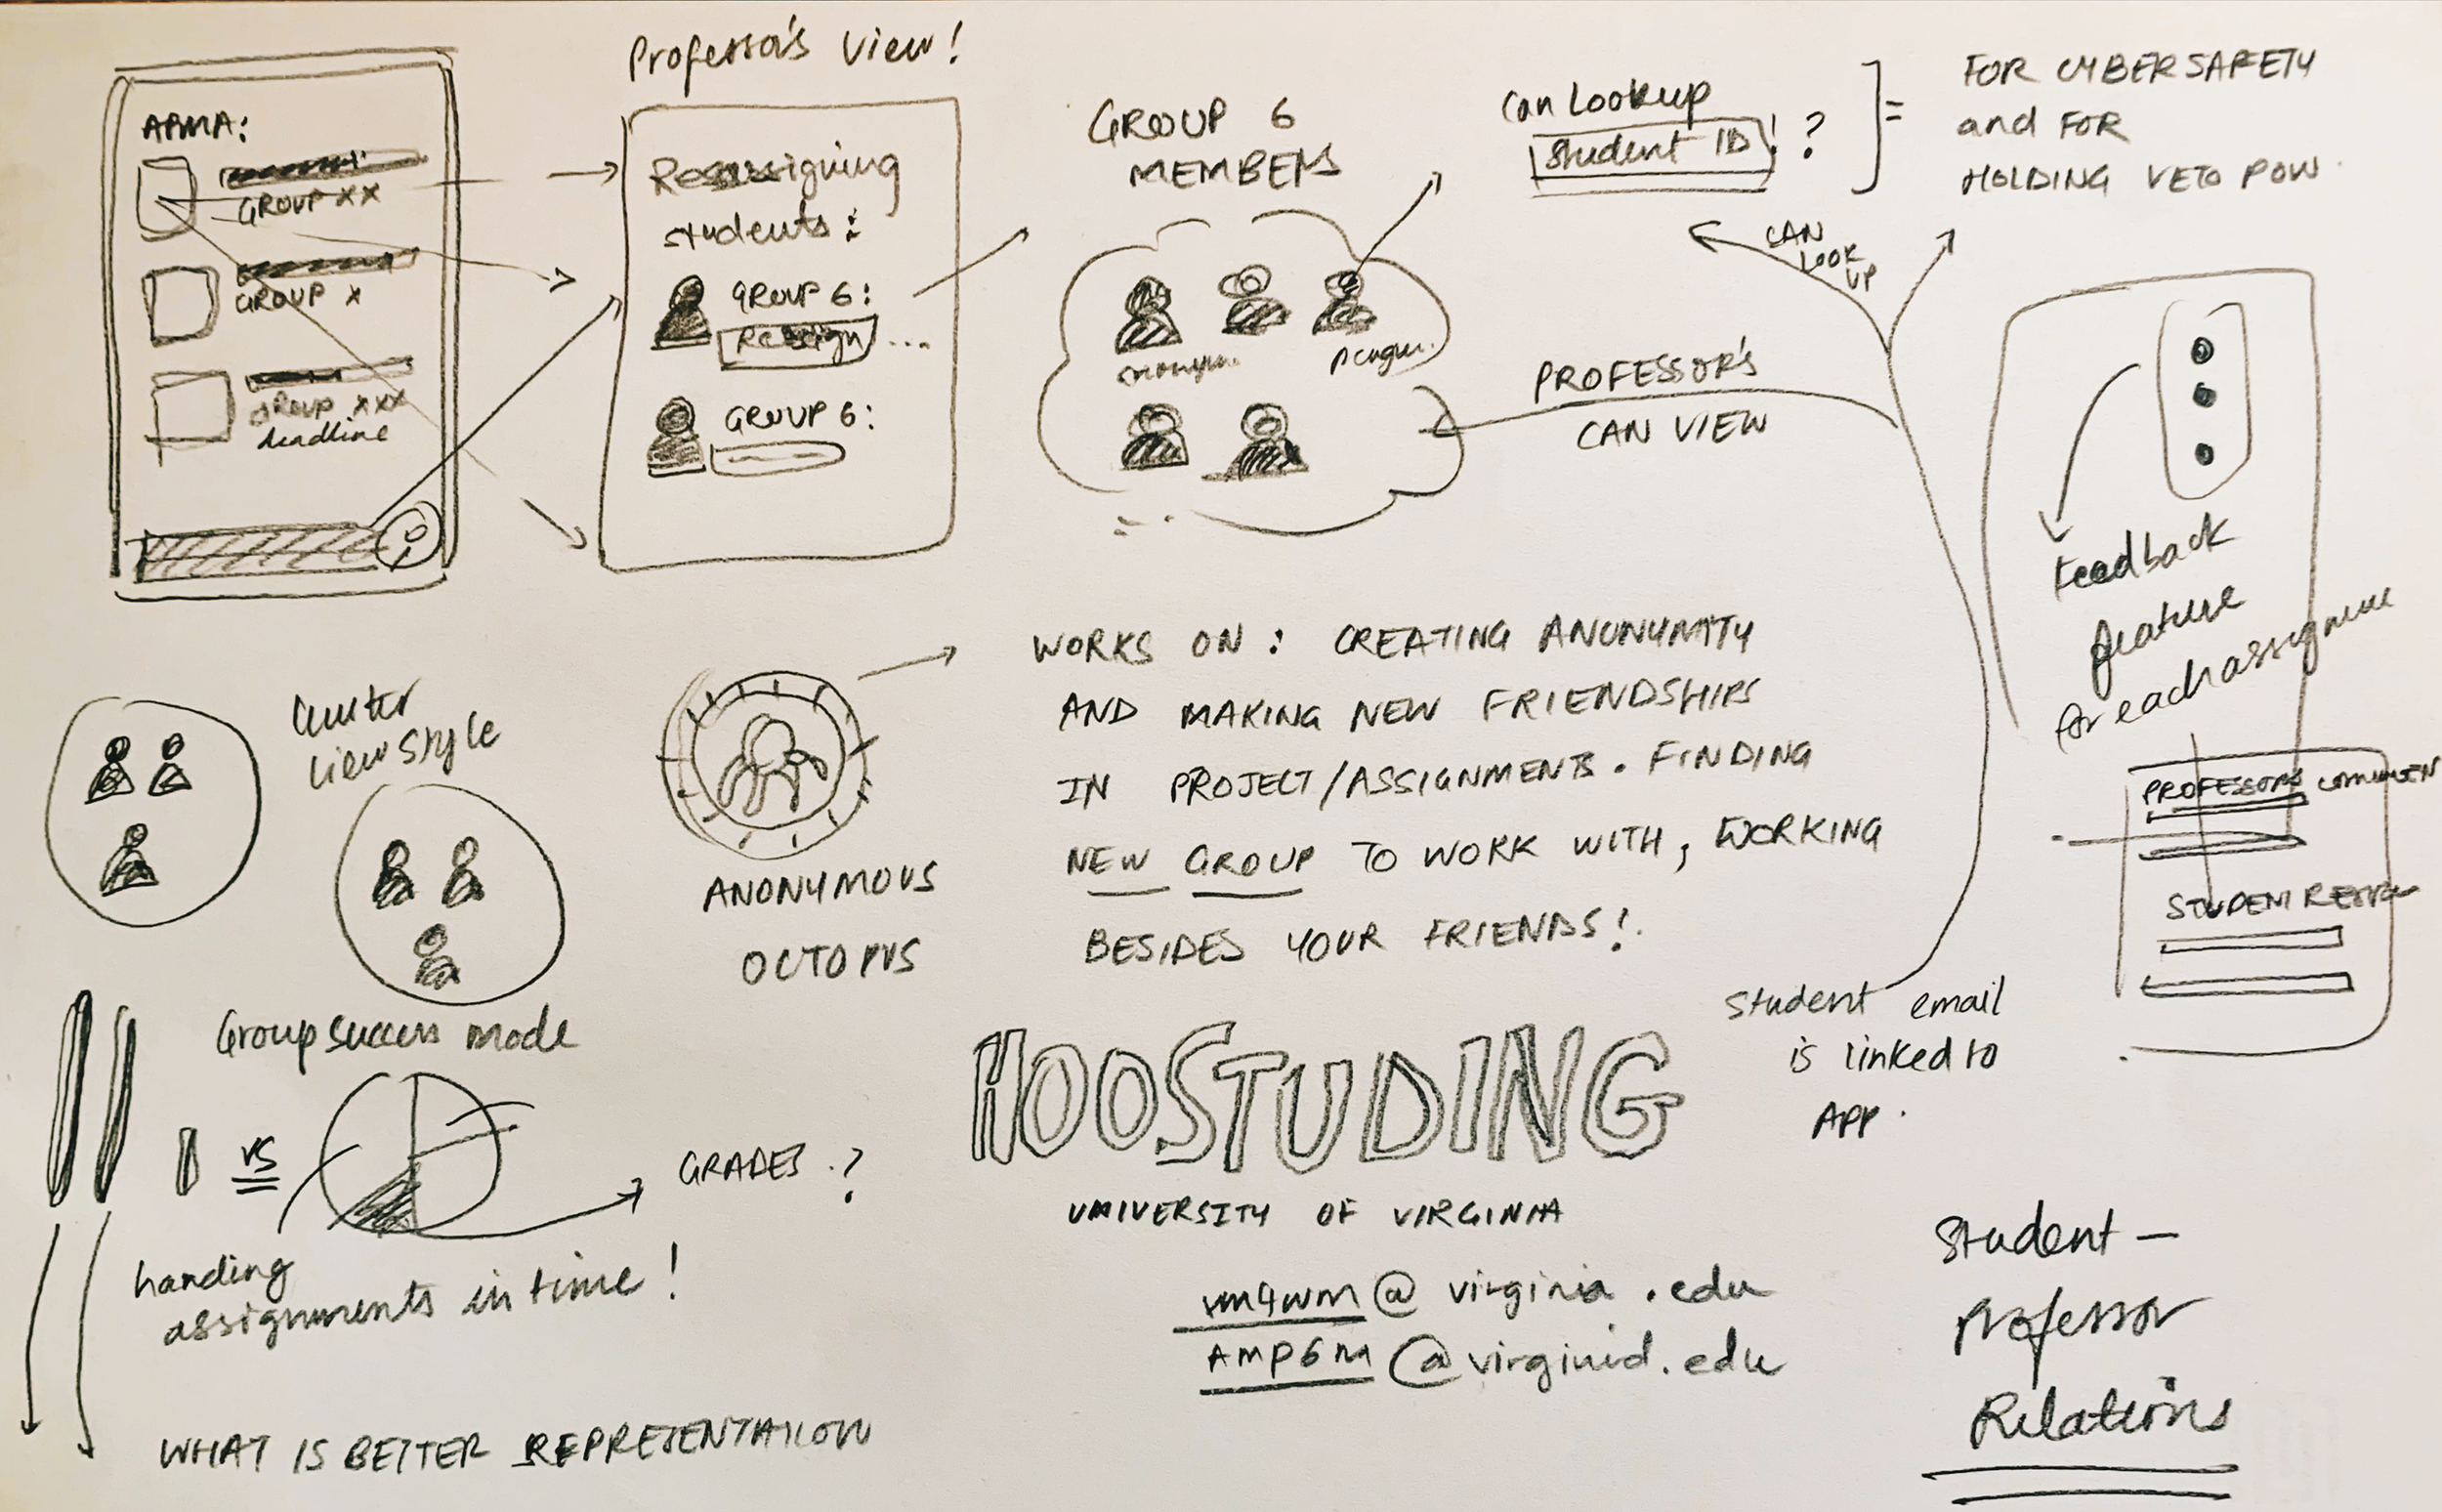 APMA:
GROUP XX
GROUP X
GROUP XXX
deadline
Professor's View!
Reassigning
students:
GROUP 6:
Reassign ...
GROUP 6:
GROUP 6
MEMBERS
Can Lookup
Student ID! ?
=
FOR CYBERSAFETY
and FOR
HOLDING VETO POW
CAN
LOOK
UP
PROFESSOR'S
CAN VIEW
Feedback
feature
for each assignme
PROFESSORS COMMEN
STUDENT
Cluster
View Style
ANONYMOUS
OCTOPUS
WORKS ON: CREATING ANONYMITY
AND MAKING NEW FRIENDSHIPS
IN PROJECT/ASSIGNMENTS. FINDING
NEW GROUP TO WORK WITH, WORKING
BESIDES YOUR FRIENDS!
Group success mode
vs
GRADES.?
handing
assignments in time!
WHAT IS BETTER REPRESENTATION
HOOSTUDING
UNIVERSITY OF VIRGINIA
@virginia.edu
AMP6M@virginia.edu
Student email
is linked to
APP.
Student-
Professor
Relations